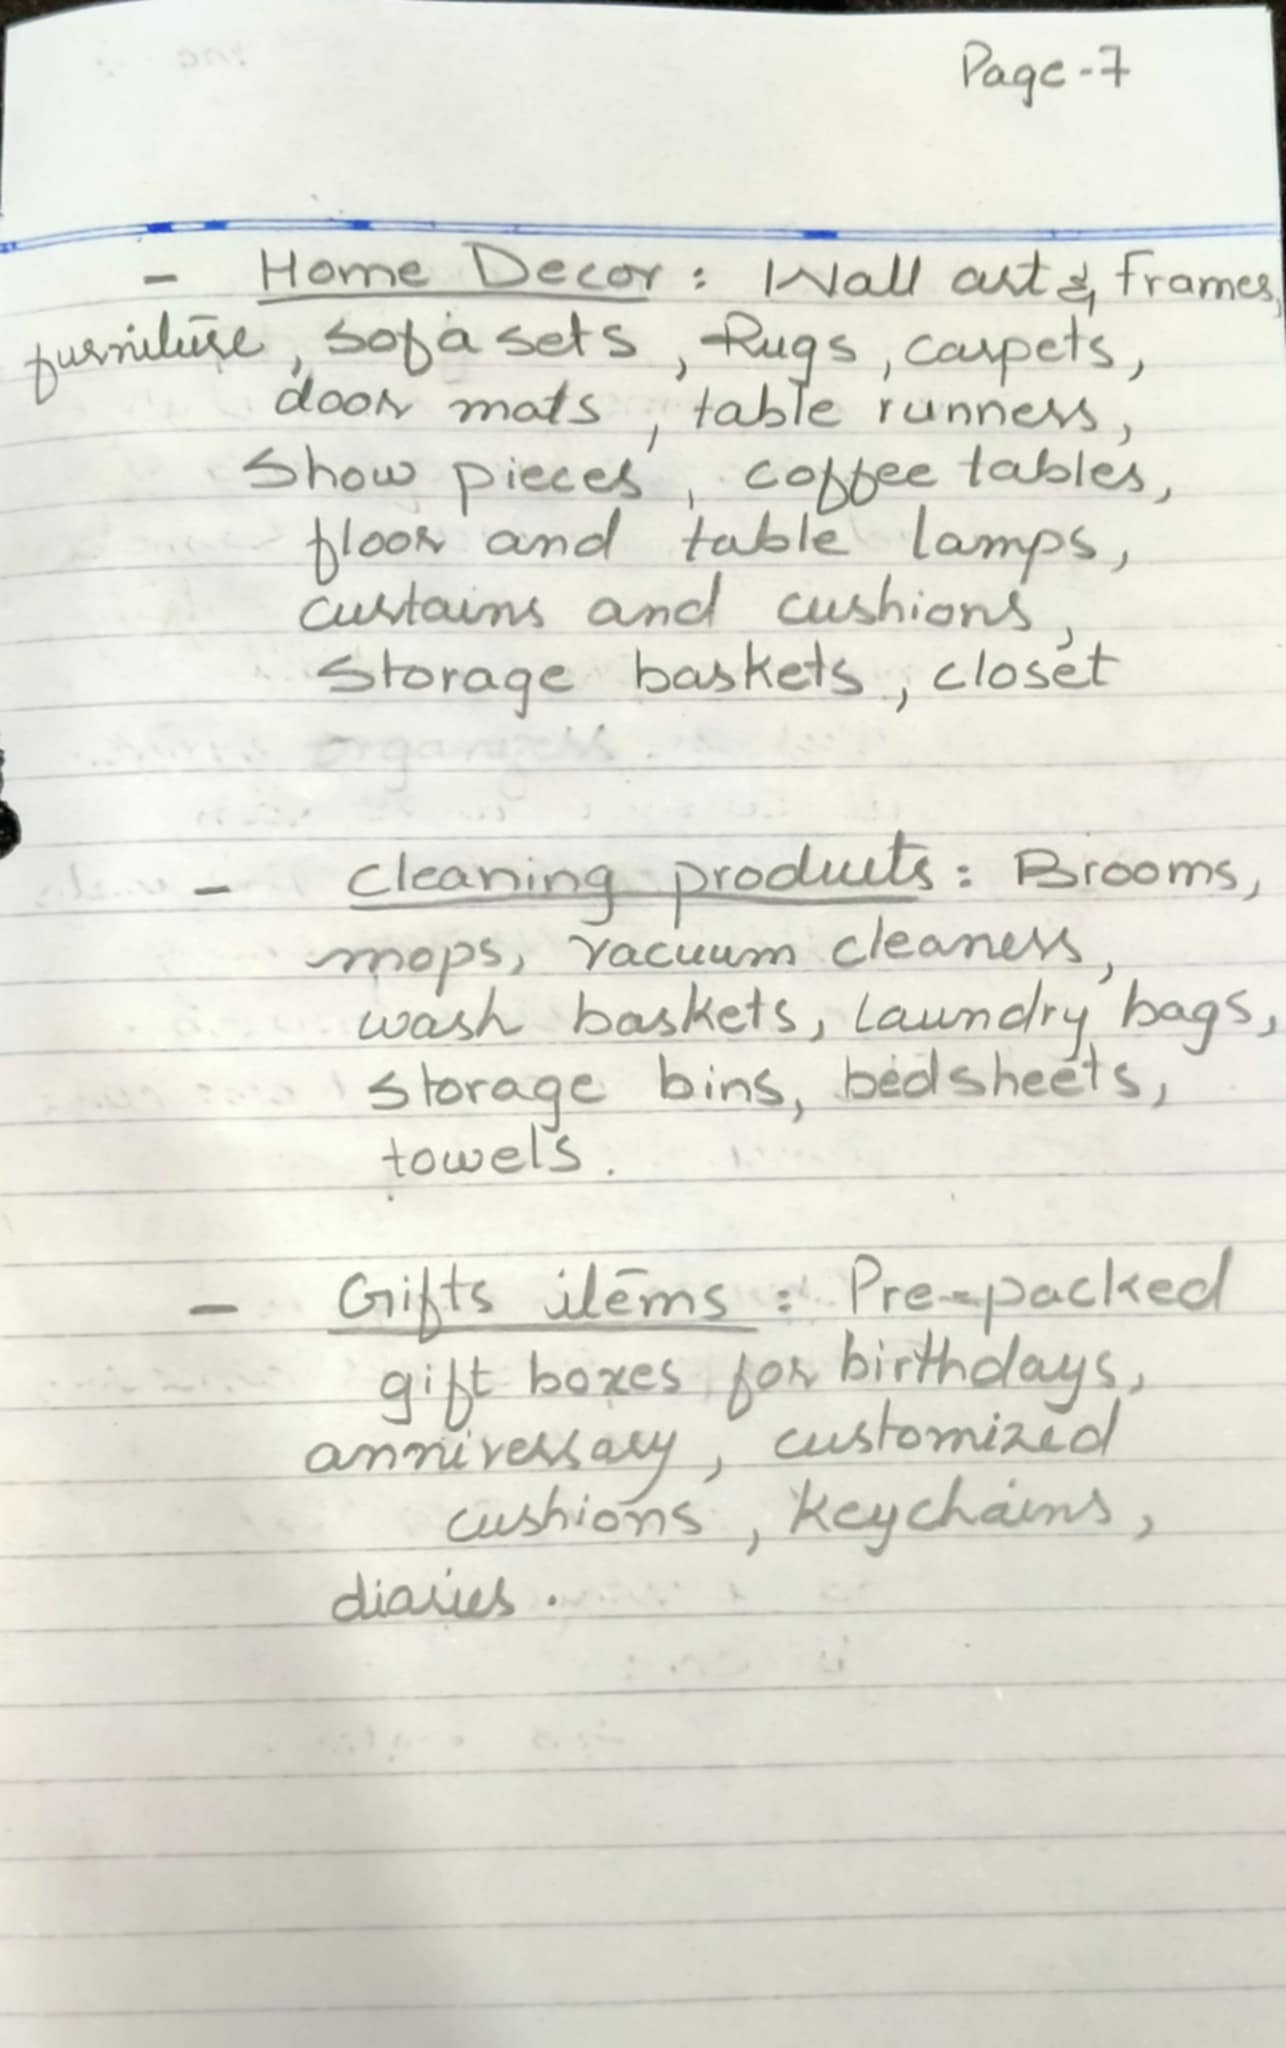 Page-7
- Home Decor : Wall art & frames,
furniture, sofa sets, Rugs, carpets,
door mats, table runners,
Show pieces, coffee tables,
floor and table lamps,
curtains and cushions,
Storage baskets, closet
organizers.
- Cleaning products : Brooms,
mops, vacuum cleaners,
wash baskets, laundry bags,
storage bins, bedsheets,
towels.
- Gifts items : Pre-packed
gift boxes for birthdays,
anniversary, customized
cushions, keychains,
diaries.